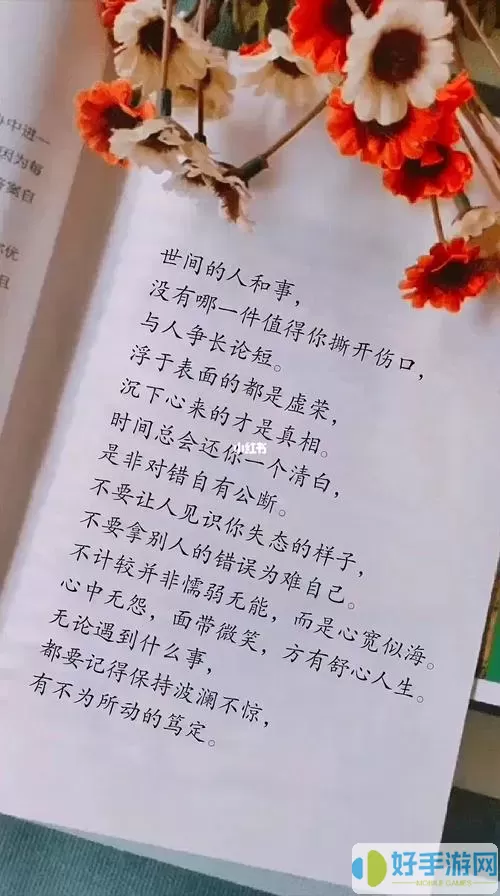 中进一
因为每
答案自
你优
且
世间的人和事，
没有哪一件值得你撕开伤口，
与人争长论短。
浮于表面的都是虚荣，
沉下心来的才是真相。
时间总会还你一个清白，
是非对错自有公断。
不要让人见识你失态的样子，
不要拿别人的错误为难自己。
不计较并非懦弱无能，而是心宽似海。
心中无怨，面带微笑，方有舒心人生。
无论遇到什么事，
都要记得保持波澜不惊，
有不为所动的笃定。
小红书
好手游网
MOBILE GAMES